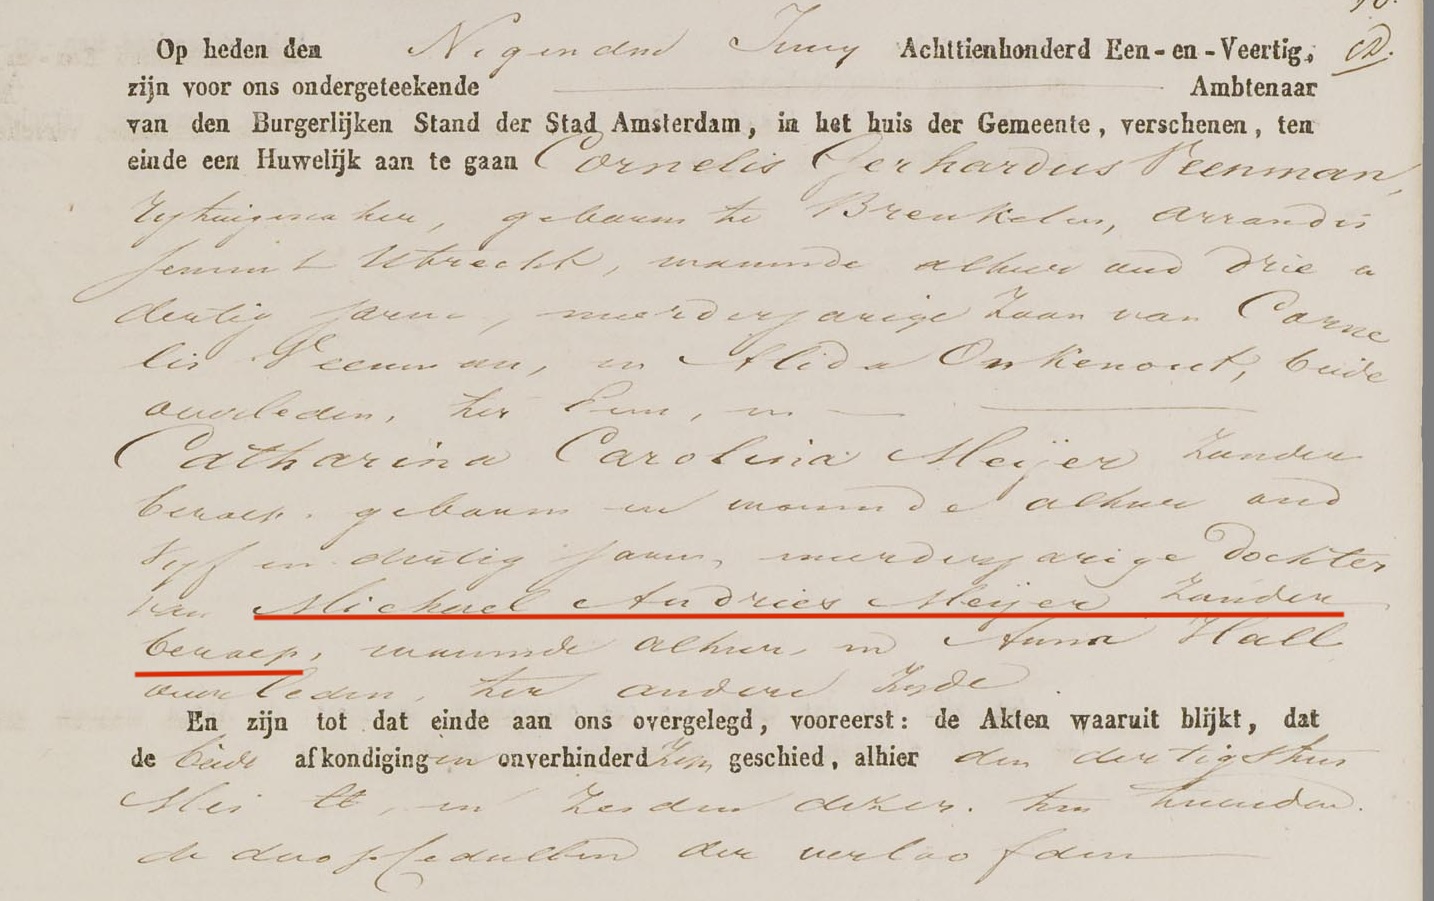 Op heden den Negenden Juny Achttienhonderd Een-en-Veertig,
zijn voor ons ondergeteekende Ambtenaar
van den Burgerlijken Stand der Stad Amsterdam, in het huis der Gemeente, verschenen, ten
einde een Huwelijk aan te gaan Cornelis Gerhardus Veenman,
Rytuigmaker, geboren te Breukelen, arrondis
sement Utrecht, wonende alhier oud drie en
dertig jaren, meerderjarige Zoon van Corne
lis Veenman, en Alida Onkenout, beide
overleden, ter Eene, en
Catharina Carolina Meijer Zonder
beroep, geboren en wonende alhier oud
Vyf en dertig jaren, meerderjarige Dochter
van Michael Andries Meijer Zonder
beroep, wonende alhier, en Anna Hall
overleden, ter andere Zyde.
En zijn tot dat einde aan ons overgelegd, vooreerst: de Akten waaruit blijkt, dat
de beide afkondigingen onverhinderd zijn geschied, alhier den dertigsten
Mei ll, en Zesden dezer. ten tweeden
de doopcedullen der verloofden